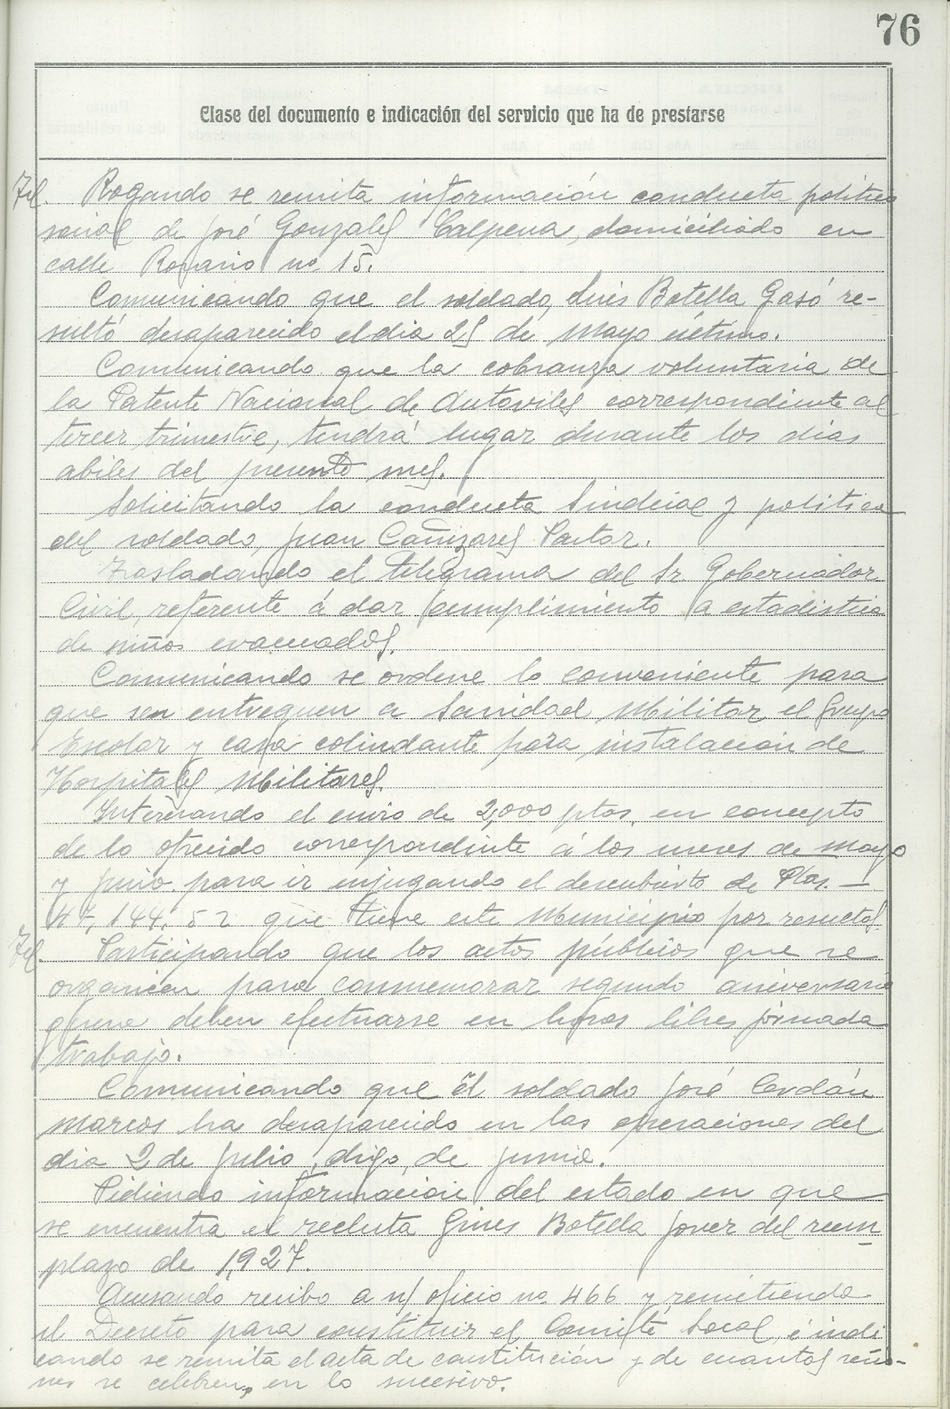 76
Clase del documento e indicación del servicio que ha de prestarse
Rogando se remita información conducta politico
social de José Gonzales Calpena, domiciliado en
calle Rosario no. 15.
Comunicando que el soldado, Luis Botella Gasó re-
sultó desaparecido el dia 25 de Mayo último.
Comunicando que la cobranza voluntaria de
la Patente Nacional de Autoviles correspondiente al
tercer trimestre, tendrá lugar durante los dias
abiles del presente mes.
Solicitando la conducta Sindical y politica
del soldado, Juan Cañizares Pastor.
Trasladando el telegrama del Sr Gobernador
Civil, referente á dar cumplimiento a estadistica
de niños evacuados.
Comunicando se ordene lo conveniente para
que sea entreguen a Sanidad Militar el Grupo
Escolar y casa colindante para instalacion de
Hospitales Militares.
Interesando el envio de 2,000 ptas. en concepto
de lo ofrecido correspondiente á los meses de mayo
y junio para ir enjugando el descubierto de Ptas. —
44,144,52 que tiene este Municipio por resultas
Participando que los actos públicos que se
organicen para conmemorar segundo aniversario
guerra deben efectuarse en horas libres jornada
trabajo.
Comunicando que el soldado José Cerdán
Marcos ha desaparecido en las operaciones del
dia 2 de Julio, digo, de junio.
Pidiendo informacion del estado en que
se encuentra el recluta Gines Botella Jover del reem
plazo de 1,927.
Acusando recibo a n/ oficio no. 466 y remitiendo
el Decreto para constituir el Comité Local, é indi
cando se remita el acta de constitución y de cuantas reunio-
nes se celebren, en lo sucesivo.